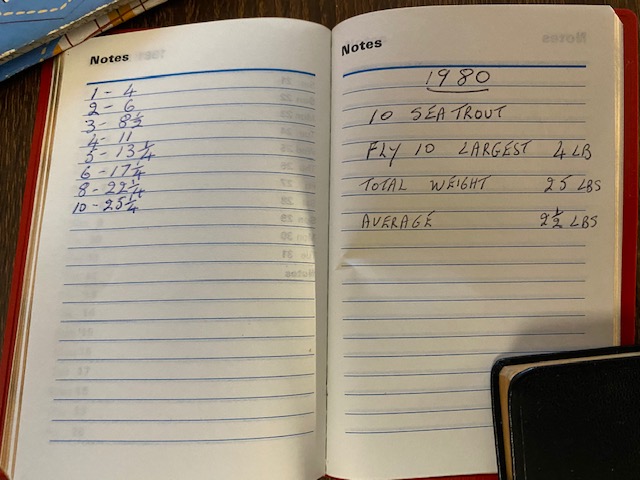 Notes
1 - 4
2 - 6
3 - 8½
4 - 11
5 - 13¼
6 - 17¼
8 - 22¼
10 - 25¼
Notes
1980
10 SEA TROUT
FLY 10 LARGEST 4 LB
TOTAL WEIGHT 25 LBS
AVERAGE 2½ LBS